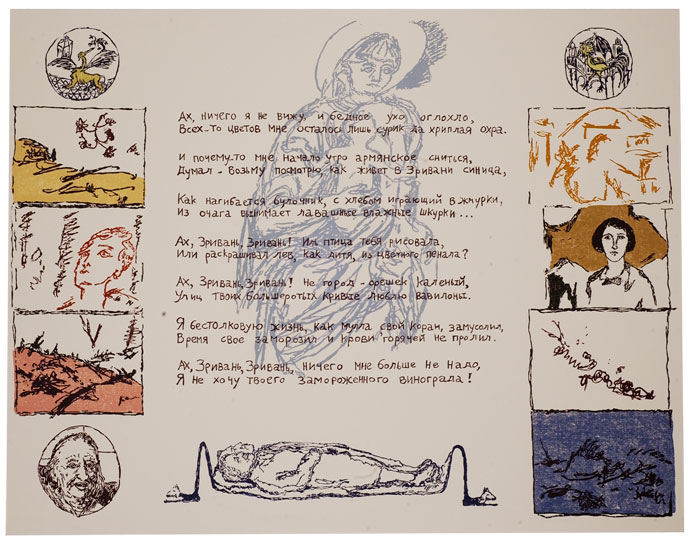 Ах, ничего я не вижу, и бедное ухо оглохло,
Всех-то цветов мне осталось лишь сурик да хриплая охра.
И почему-то мне начало утро армянское сниться,
Думал - возьму посмотрю, как живет в Эривани синица,
Как нагибается булочник, с хлебом играющий в жмурки,
Из очага вынимает лавашные влажные шкурки...
Ах, Эривань, Эривань! Иль птица тебя рисовала,
Или раскрашивал лев, как дитя, из цветного пенала?
Ах, Эривань, Эривань! Не город - орешек каленый,
Улиц твоих большеротых кривые люблю вавилоны.
Я бестолковую жизнь, как мулла свой коран, замусолил,
Время свое заморозил и крови горячей не пролил.
Ах, Эривань, Эривань, ничего мне больше не надо,
Я не хочу твоего замороженного винограда!